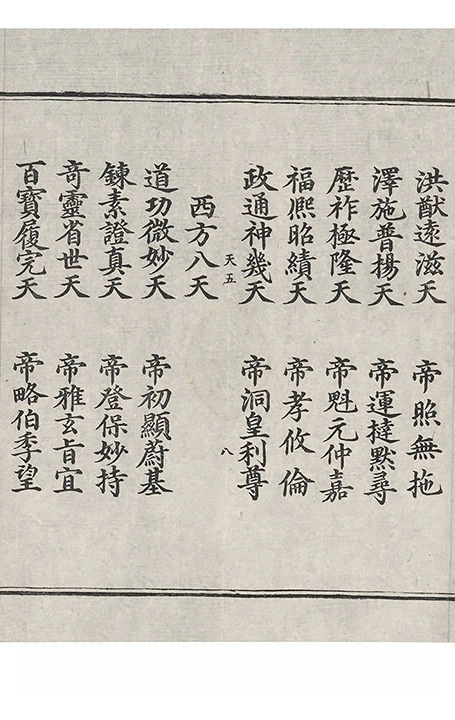 洪猷遠滋天　帝照無拖
澤施普揚天　帝運撻默尋
歷祚極隆天　帝魁元仲嘉
福熈昭績天　帝孝攸倫
政通神幾天　帝洞皇利尊
天五　八
西方八天
道功微妙天　帝初顯蔚基
鍊素證真天　帝登保妙持
竒靈省世天　帝雅玄㫖宜
百寶履完天　帝略伯季望